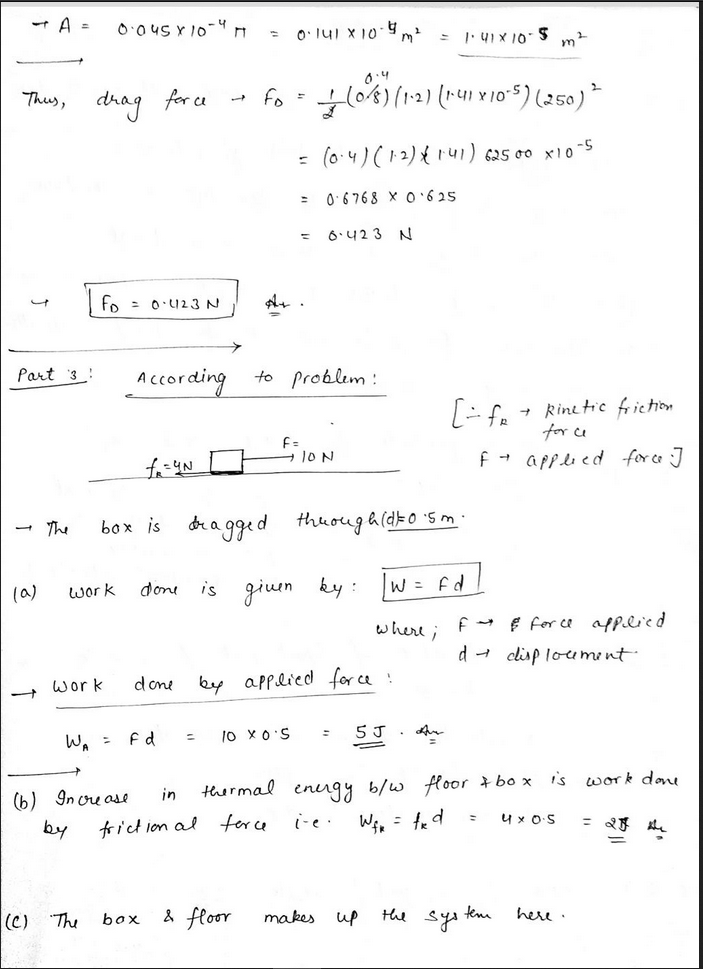 → A = 0.045 × 10⁻⁴ π = 0.141 × 10⁻⁴ m² = 1.41 × 10⁻⁵ m²
Thus, drag force → F_D = 1/2 (0.8) 0.4 (1.2) (1.41 × 10⁻⁵) (250)²
= (0.4) (1.2) (1.41) 62500 × 10⁻⁵
= 0.6768 × 0.625
= 0.423 N
→ F_D = 0.423 N Ans.
Part 3: According to problem:
[∵ f_k → kinetic friction
force
F → applied force]
f_k = 4N F = 10 N
→ The box is dragged through (d) = 0.5 m.
(a) Work done is given by: W = Fd
where; F → force applied
d → displacement
→ Work done by applied force:
W_A = Fd = 10 × 0.5 = 5 J. Ans
(b) Increase in thermal energy b/w floor & box is work done
by frictional force i.e. W_fk = f_k d = 4 × 0.5 = 2J Ans
(c) The box & floor makes up the system here.